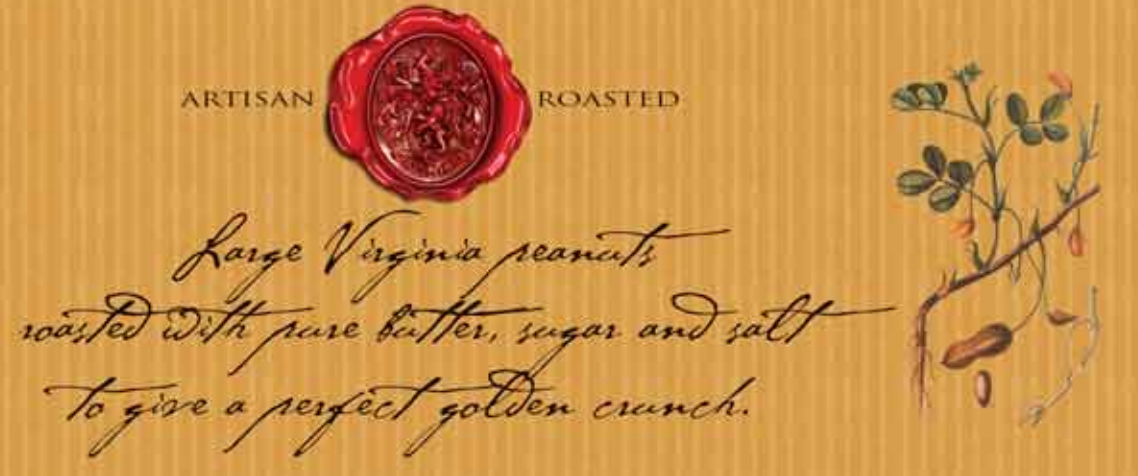 ARTISAN ROASTED
Large Virginia peanuts
roasted with pure butter, sugar and salt
to give a perfect golden crunch.